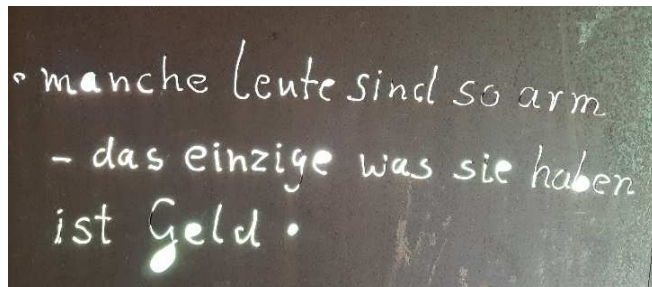 • manche leute sind so arm
– das einzige was sie haben
ist Geld •